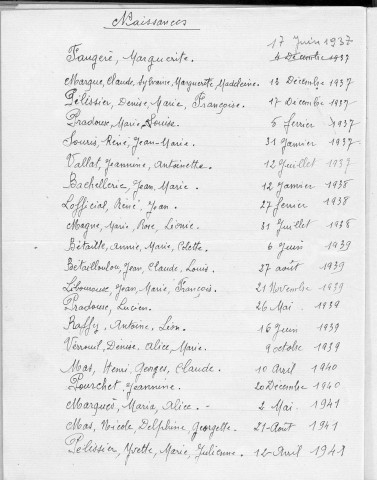 Naissances
17 Juin 1937
Faugere, Marguerite. 4 Décembre 1937
Margue, Claude, Sylvaine, Marguerite Madeleine. 13 Décembre 1937
Pélissier, Denise, Marie, Françoise. 17 Décembre 1937
Pradoux, Marie, Louise. 5 février 1937
Souris, René, Jean-Marie. 31 Janvier 1937
Vallat, Jeannine, Antoinette. 12 Juillet 1937
Bachellerie, Jean, Marie. 12 Janvier 1938
Lofficial, René, Jean. 27 février 1938
Magne, Marie, Rose, Léonie. 31 Juillet 1938
Bétaille, Annie, Marie, Colette. 6 Juin 1939
Bétailloulou, Jean, Claude, Louis. 27 août 1939
Jean, Marie, François. 21 Novembre 1939
Pradoux, Lucien. 26 Mai. 1939
Raffy, Antoine, Léon. 16 Juin 1939
Verrouil, Denise, Alice, Marie. 9 octobre 1939
Mas, Henri, Georges, Claude. 10 Avril 1940
Pourchet, Jeannine. 20 Décembre 1940
Marquès, Maria, Alice. - 2 Mai. 1941
Mas, Nicole, Delphine, Georgette. 21-Août 1941
Pélissier, Yvette, Marie, Julienne. 12-Avril 1941